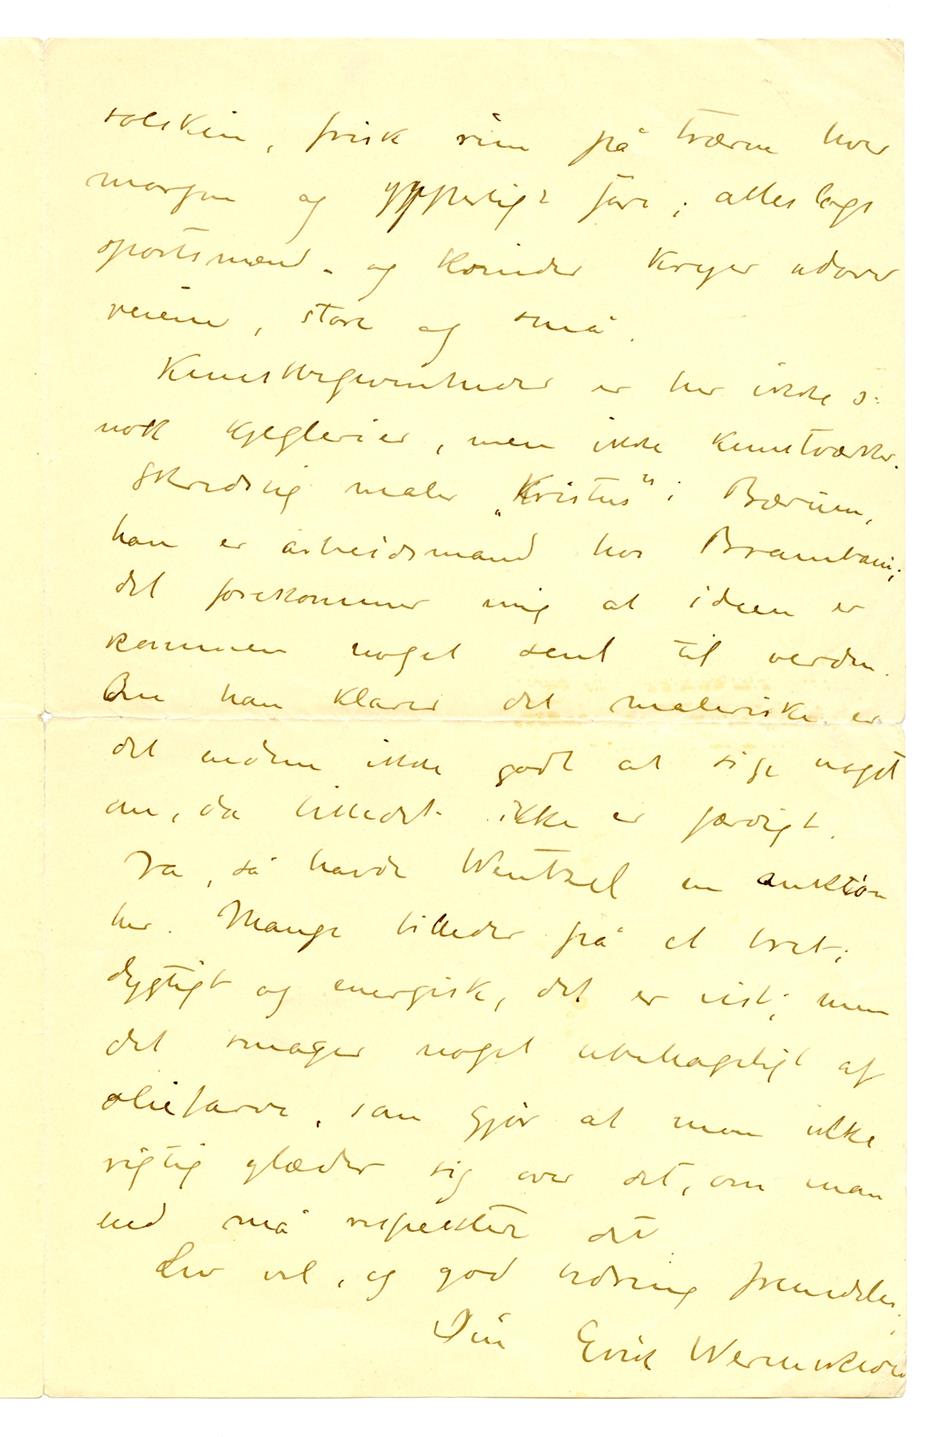 solskin, frisk rim på trærne hver
morgen og ypperligt føre; alleslags
sportsmænd - og kvinder kryer udover
veiene, store og små.
Kunstbegivenheder er her ikke s:
nok kjeglerier, men ikke kunstværker.
Skredsvig maler „Kristus" i Bærum,
han er arbeidsmand hos Brambani;
det forekommer mig at ideen er
kommen noget sent til verden.
Om han klarer det maleriske er
det endnu ikke godt at sige noget
om, da billedet ikke er færdigt.
Ja, så havde Wentzel en auktion
her. Mange billeder på et bret;
dygtigt og energisk, det er vist; men
det smager noget ubehageligt af
oliefarve, som gjør at man ikke
rigtig glæder sig over det, om man
end må respektere det
Lev vel, og god bedring fremdeles.
Din Erik Werenskiold